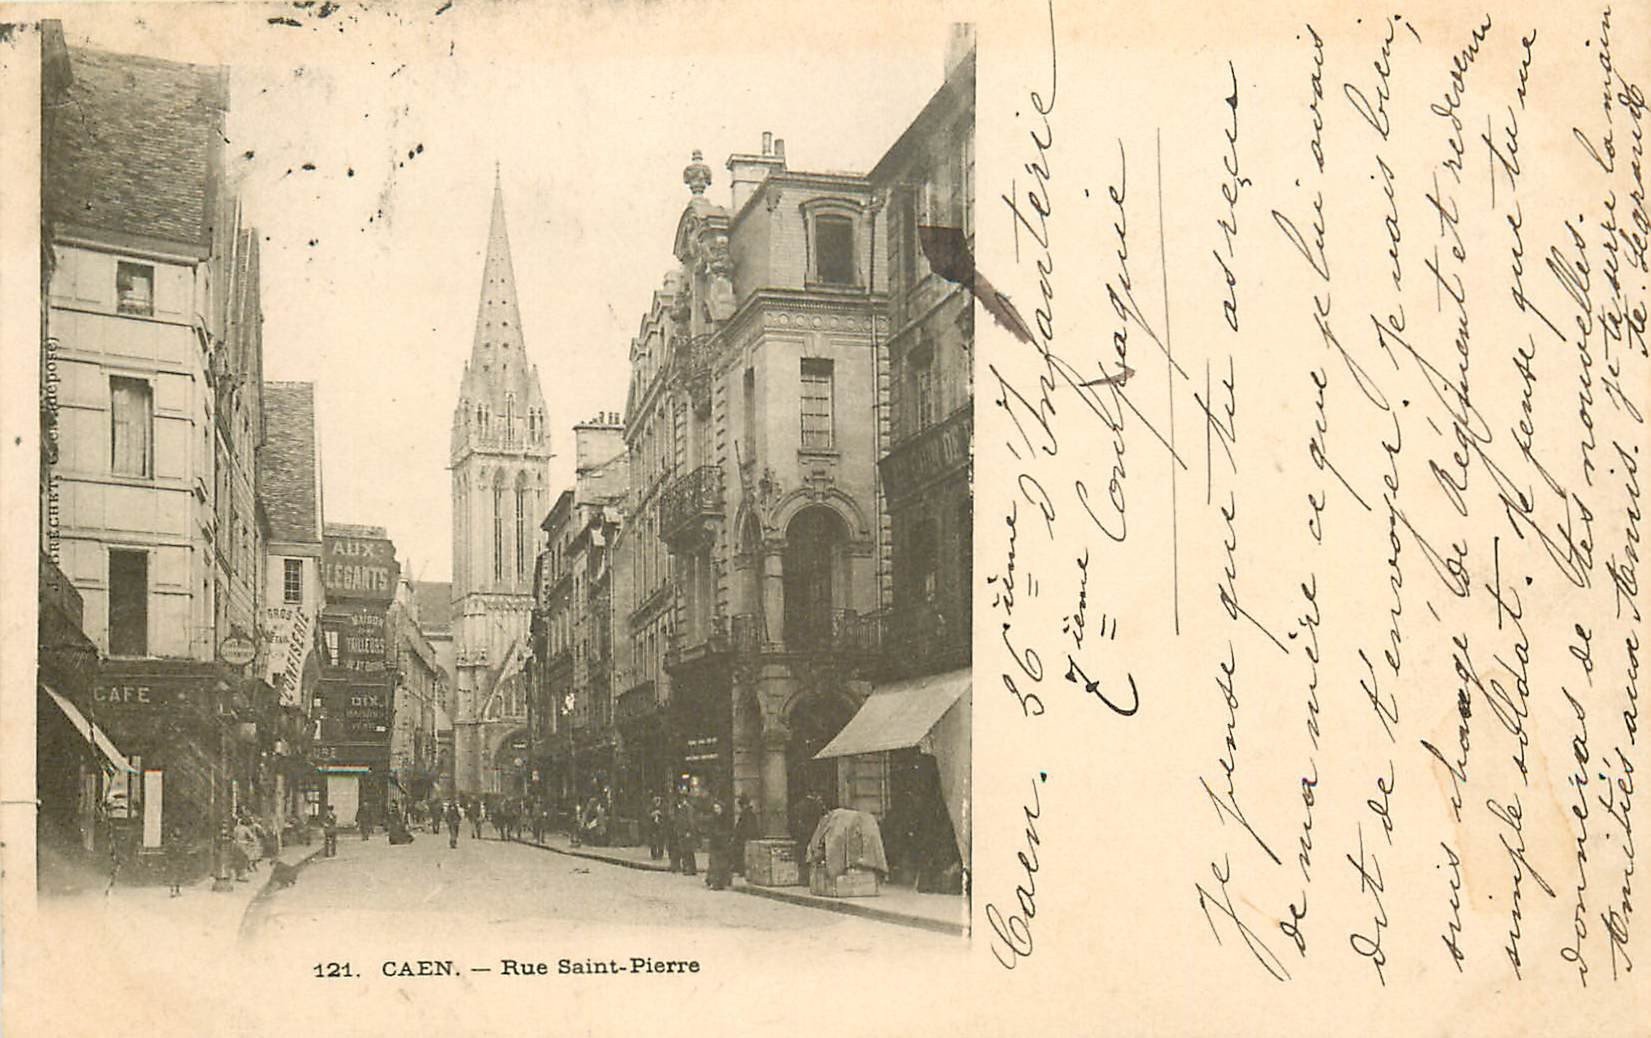 J. BRÉCHET, Caen (déposé)
CAFE
GROS
CONFISERIE
AUX
ELEGANTS
MAISON
TAILLEURS
DIX
121. CAEN. — Rue Saint-Pierre
Caen. 36ième d'Infanterie
7ième Compagnie
Je pense que tu as reçue
de ma mère ce que je lui avais
dit de t'envoyer. Je vais bien,
suis changé de Régiment et redevenu
simple soldat. Je pense que tu me
donneras de tes nouvelles.
Amitiés aux Amis. je te serre la main
Legrand